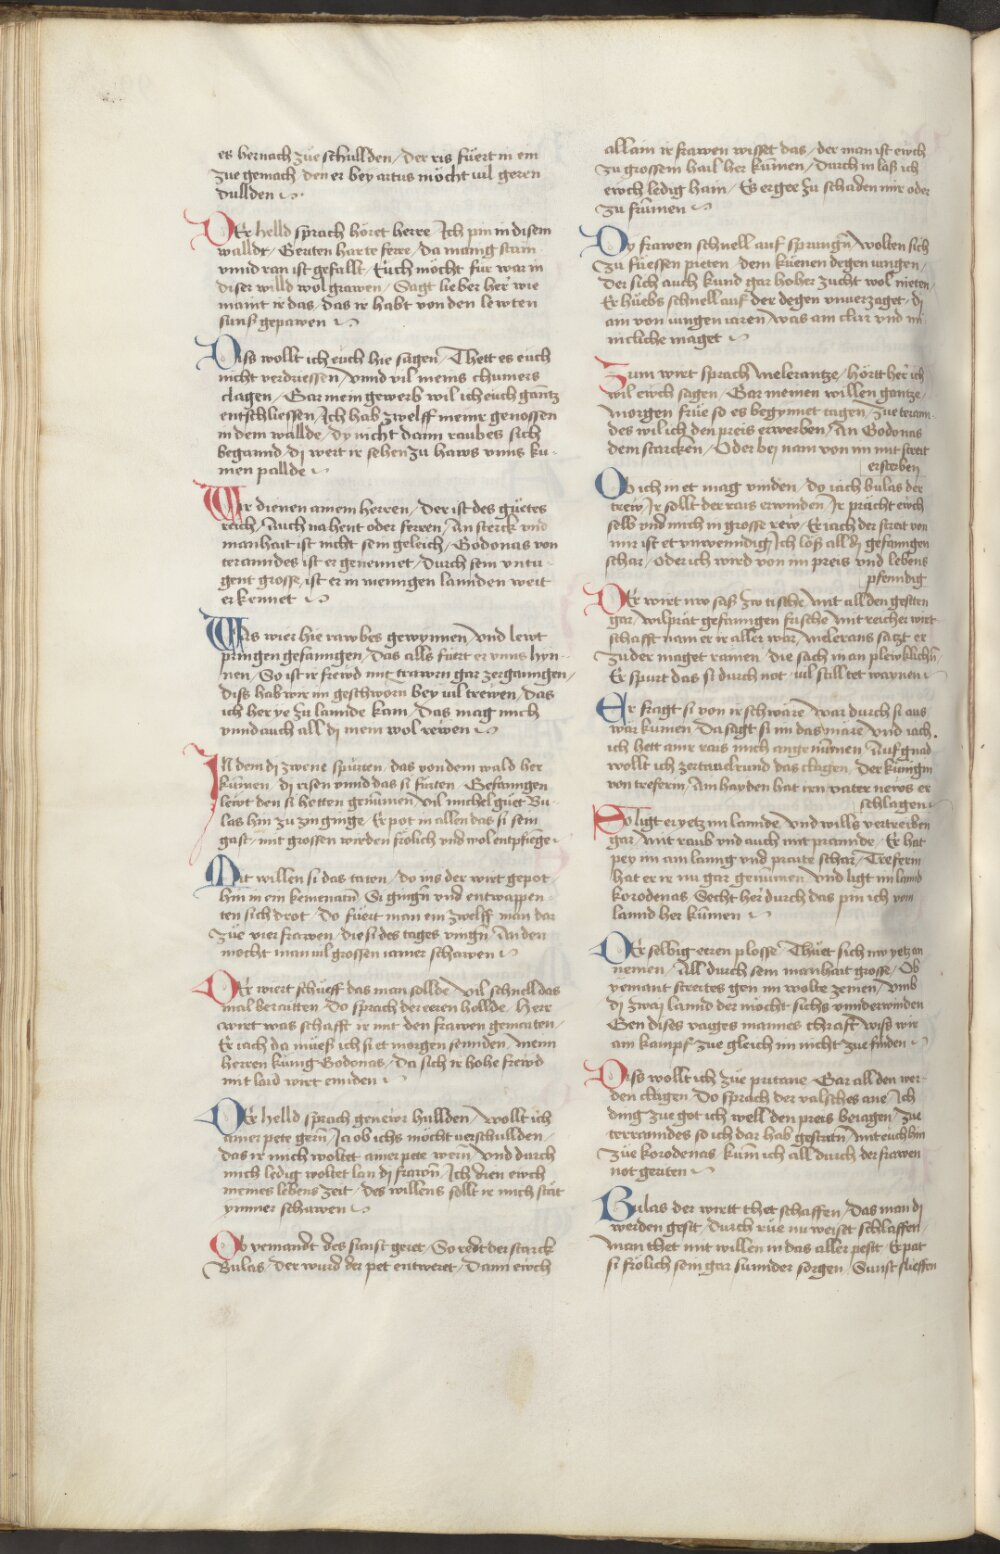 es hernach zue schullden / der ris fuert in ein
zue gemach / den er bey artus möcht vil geren
dullden
Der helld sprach höret herre / Ich pin in disem
walldt / Geriten harte ferre / da manig stam
vnnd ran ist gefallt / Euch möcht für war in
diser willd wol grawen / Sagt lieber her wie
maint ir das / das ir habt von den lewten
sunst gepawen
Diss wollt ich euch hie sagen / Thett es euch
nicht verdriessen / vnnd vil meins chumers
clagen / Gar mein gewerb wil ich euch gantz
entschliessen / Ich hab zwelff meiner genossen
in dem wallde / dy nicht dann raubes sich
begannd / di wert ir sehen zu haws vnns ku-
men pallde
Wir dienen ainem herren / Der ist des guetes
reich / Auch nahent oder ferren / An sterck vnd
manhait ist nicht sein geleich / Godonas von
terannides ist er genennet / durch sein vntu-
gent grosse / ist er in mennigen lannden weit
erkennet
Was wier hie rawbes gewynnen / vnd lewt
pringen gefanngen / das alls fuert er vnns hyn-
nen / So ist ir frewd mit trawrn gar zerganngen /
diss hab wir im geschworn bey vil trewen / das
ich her ye zu lannde kam / das mag mich
vnnd auch all di mein wol rewen
In dem di zwene spurten / das von dem wald her
kumen / di risen vnnd das si furten / Gefanngen
lewt den si hetten genumen / vil michel guet Bu-
las hin zu zin ginge / Er pot in allen das si sein
gast / mit grossen wirden frölich vnd wol entpfienge
Mit willen si das taten / do ins der wirt gepot /
hin in ein kemenatn / Si gingn vnd entwappen-
ten sich drot / Do fuert man ein zwelff man dar
zue vier frawen / die si des tages viengn / An den
mocht man vil grossen iamer schawen
Der wiert schueff das man sollde / vil schnell das
mal beraitten / Do sprach der eren hollde / Herr
wirt was schafft ir mit den frawen gemaiten /
Er iach da mueß ich si et morgen sennden / mein
herren kunig Godonas / da sich ir hohe frewd
mit laid wirt ennden
Der helld sprach geneior hullden / Wollt ich
ainer pete gern / Ja ob ichs möcht verschullden /
das ir mich woltet ainer pete wern / vnd durch
mich ledig woltet lan di frawn / Ich dien ewch
meines lebens zeit / des willens sollt ir mich stät
ymmer schawen
Ob yemandt des sunst geret / So redt der starck
Bulas / der wurd der pet entweret / dann ewch
allain ir frawen wisset das / der man ist ewch
zu grossem hail her kumen / durch in laß ich
ewch ledig hain / Es ergee zu schaden mir oder
zu frumen
Dy frawen schnell auf sprungn / wolten sich
zu fuessen pieten / dem kuenen degen iungen /
der sich auch kund gar hoher zucht wol nieten /
Er huebs schnell auf der degen vnuerzaget / di
ain von iungen iaren / was ain clar vnd mi-
nicliche maget
Zum wirt sprach melerantze / hört her ich
wil ewch sagen / Gar meinen willen gantze /
morgen frue so es begynnet tagen / zue terann-
des wil ich den preis erwerben / An Godonas
dem starcken / Oder bei nam von im mit streit
ersterben
Ob ich in et mag vinden / do iach bulas der
trew / Ir sollt der rais erwinden / Ir pracht ewch
selb vnd mich in grosse rew / Er iach der streit von
mir ist et vnwenndig / Ich löß all di gefanngen
schar / oder ich wird von im preis vnd lebens
pfenndig
Der wirt nw saß zw tische / mit all den gesten
gar / wilprät gefanngen fische / mit reicher wirt-
schafft nam er ir aller war / Melerans satzt er
zu der maget rainen / die sach man plewklichn /
Er spurt das si durch not / vil still tet waynen
Er fragt si von ir schwäre / war durch si aus
wär kumen / Da sagt si im das märe / vnd iach
ich hett ainr rais mich angenumen / Auf gnad
wollt ich zertauelrund das clagen / der künigin
von treferin / Ain hayden hat irn vater newes er
schlagen
So ligt er yetz im lannde / vnd wills vertreiben
gar / mit raub vnd auch mit prannde / Er hat
pey im ain lanng vnd praite schar / Treferin
hat er ir nu gar genumen / vnd ligt im lannd
korodenas / Secht her durch das pin ich vom
lannd her kumen
Der selbig eren plosse / Thuet sich nw yetz an
nemen / All durch sein manhait grosse / Ob
yemant streites gen im wolte zemen / vmb
di zwai lannd der möcht sichs vnnderwinden
Gen dises vaiges mannes chrafft / wiss wir
am kampf zue gleich im nicht zue finden
Diss wollt ich zue pritane / Gar all den wer-
den clagen / Do sprach der valsches ane / Ich
ding zue got ich well den preis beiagen / zue
terrannides so ich dar hab gestritn / mit euch hin
zue korodenas / kum ich all durch der frawen
not geriten
Bulas der wirtt thet schaffen / das man di
werden gest / durch rue nu weiset schlaffen /
man thet mit willen in das aller pesst / Er pat
si frölich sein gar sunnder sorgen / Sunst slieffen